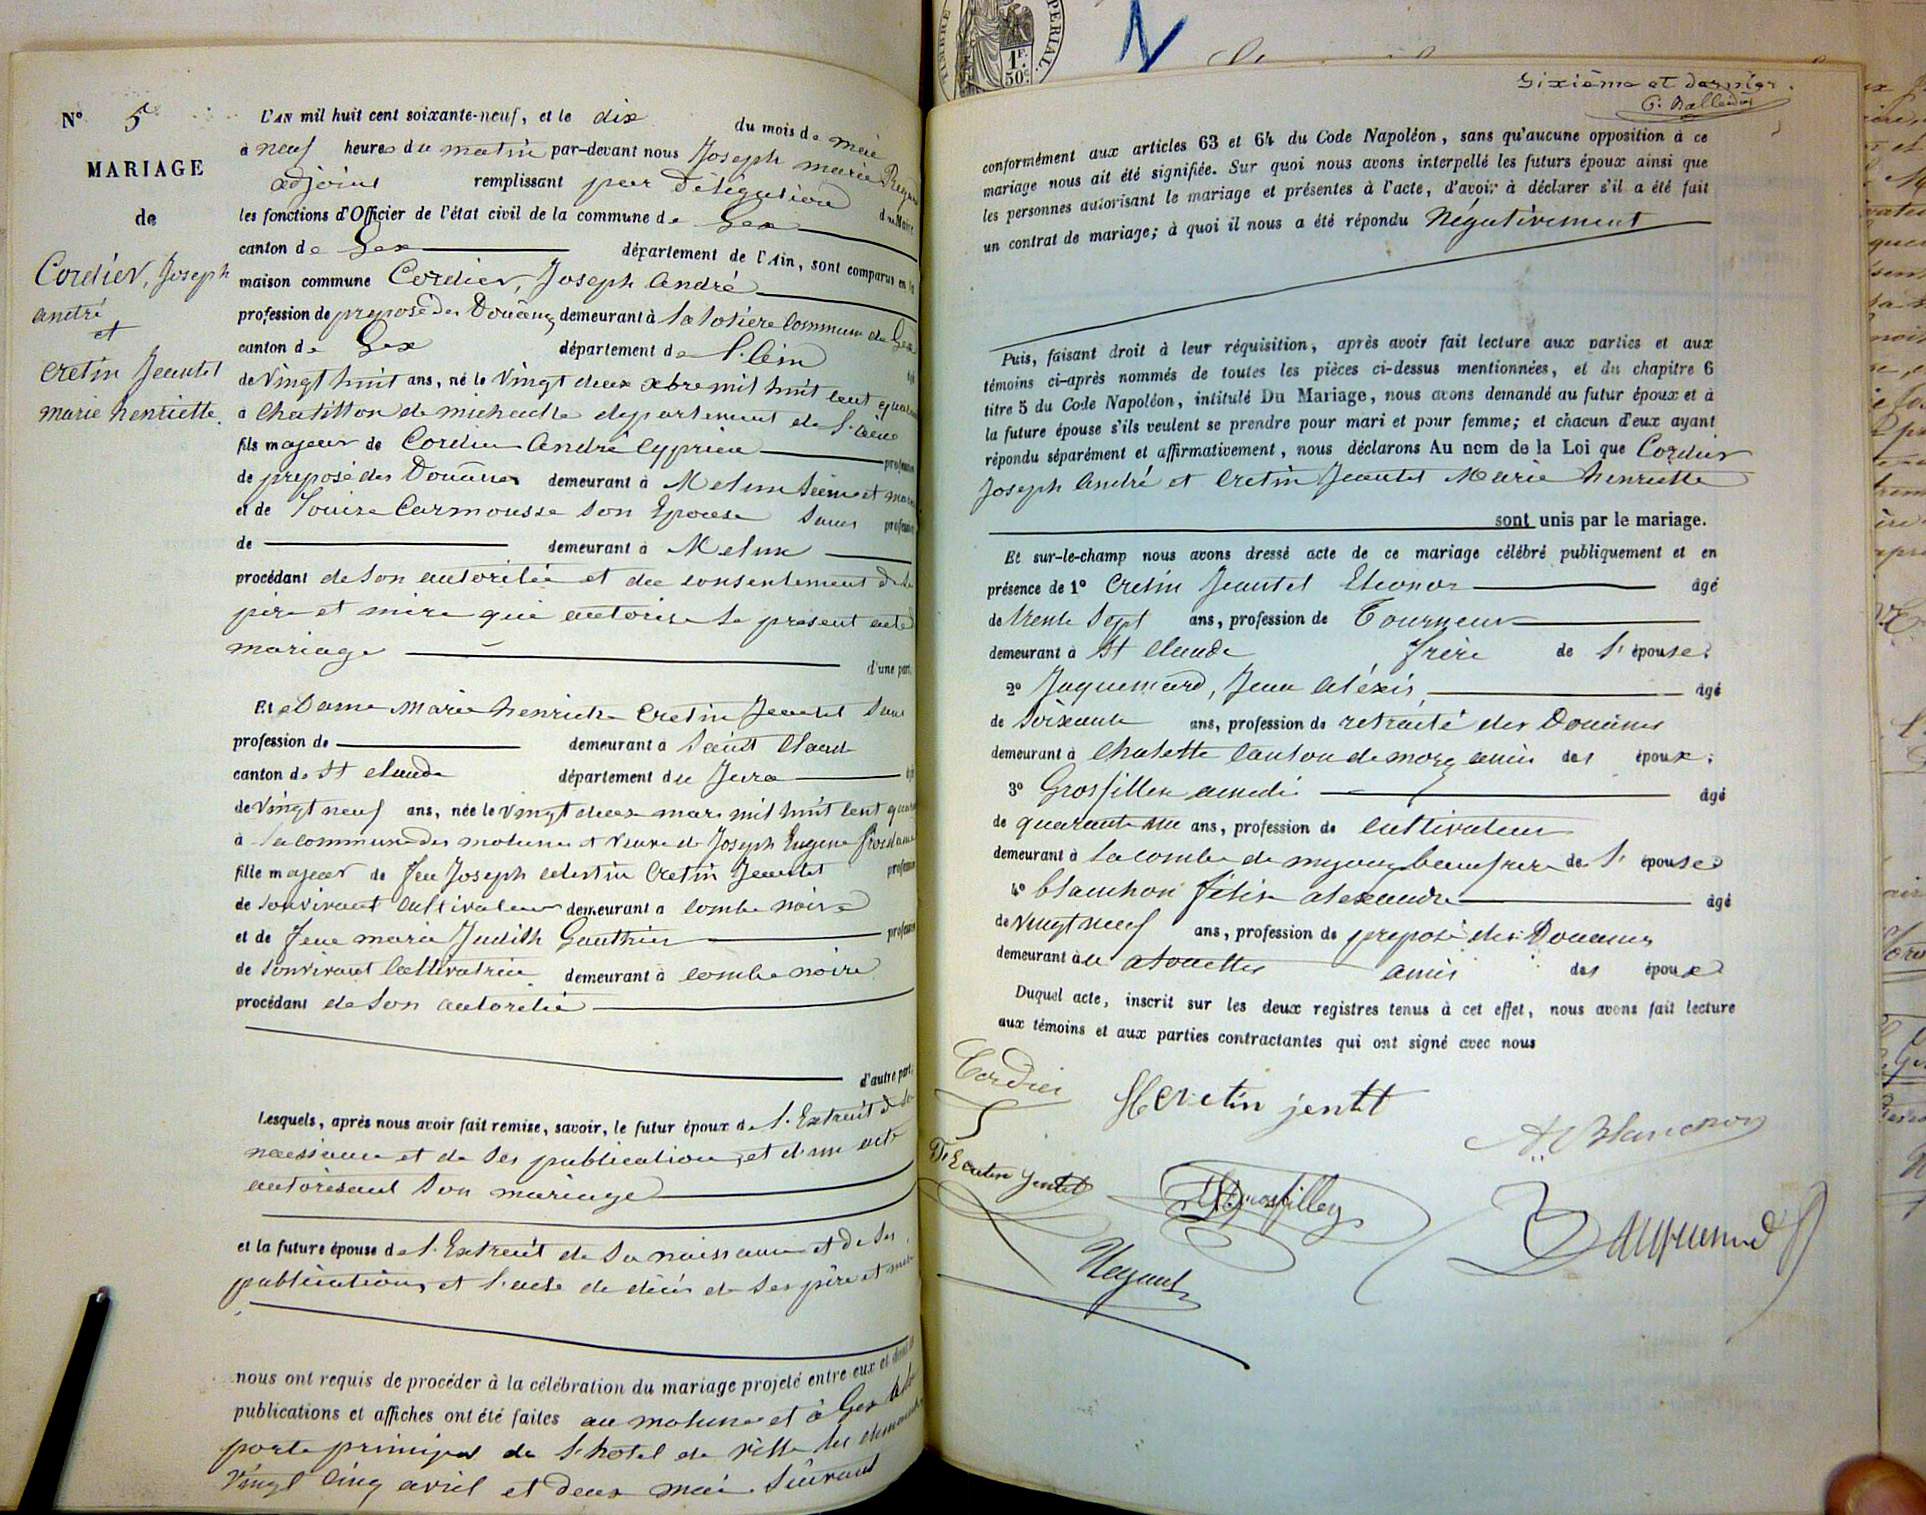 N° 5
MARIAGE
de
Cordier, Joseph
andré
et
Cretin Jeantet
marie henriette.
L'AN mil huit cent soixante-neuf, et le dix du mois de mai
à neuf heures du matin par-devant nous Joseph marie
adjoint remplissant par Délégation du Maire
les fonctions d'Officier de l'état civil de la commune de Gex
canton de Gex département de l'Ain, sont comparus en la
maison commune Cordier, Joseph André
profession de préposé des Douânes demeurant à la fotiere Commune de Gex
canton de Gex département de l'ain
de Vingt huit ans, né le Vingt deux xbre mil huit cent
à Chatillon de michaille département de l'ain
fils majeur de Cordier André Cyprien
de préposé des Douânes demeurant à Melun Seine et marne
et de Louise Carmousse Son Epouse Sans profession
de demeurant à Melun
procédant de Son autoritée et du consentement de Ses
père et mère qui autorise le présent acte
mariage
d'une part.
Et Dame Marie henriette Cretin Jeantet Sans
profession de demeurant à Saint Claude
canton de St Claude département du Jura
de Vingt neuf ans, née le Vingt deux mars mil huit cent
à la commune des molunes et Veuve de Joseph Eugene
fille majeur de feu Joseph celestin Cretin Jeantet
de Son vivant Cultivateur demeurant à combe noire
et de feue marie Judith Gauthier
de Son vivant Cultivatrice demeurant à combe noire
procédant de Son autoritée
d'autre part.
Lesquels, après nous avoir fait remise, savoir, le futur époux de l'Extrait de Sa
naissance et de Ses publication, et d'un acte
autorisant Son mariage
et la future épouse de l'Extrait de Sa naissance et de Ses
publications, et l'acte de décès de Ses père et mère
nous ont requis de procéder à la célébration du mariage projeté entre eux et dont les
publications et affiches ont été faites au molunes et à Gex
porte principal de l'hotel de ville les dimanches
Vingt Cinq avril et deux mai Suivant
TIMBRE IMPERIAL.
1F.
50c
Sixième et dernier.
conformément aux articles 63 et 64 du Code Napoléon, sans qu'aucune opposition à ce
mariage nous ait été signifiée. Sur quoi nous avons interpellé les futurs époux ainsi que
les personnes autorisant le mariage et présentes à l'acte, d'avoir à déclarer s'il a été fait
un contrat de mariage; à quoi il nous a été répondu Négativement
Puis, faisant droit à leur réquisition, après avoir fait lecture aux parties et aux
témoins ci-après nommés de toutes les pièces ci-dessus mentionnées, et du chapitre 6
titre 5 du Code Napoléon, intitulé Du Mariage, nous avons demandé au futur époux et à
la future épouse s'ils veulent se prendre pour mari et pour femme; et chacun d'eux ayant
répondu séparément et affirmativement, nous déclarons Au nom de la Loi que Cordier
Joseph André et Cretin Jeantet Marie henriette
sont unis par le mariage.
Et sur-le-champ nous avons dressé acte de ce mariage célébré publiquement et en
présence de 1° Cretin Jeantet Eleonor âgé
de trente Sept ans, profession de Tourneur
demeurant à St Claude frère de l'épouse.
2° Jaquemard, Jean Aléxis âgé
de Soixante ans, profession de retraité des Douânes
demeurant à Chatette Canton de morez amis des époux;
3° Grosfillex amedi âgé
de quarante un ans, profession de Cultivateur
demeurant à la combe de mijoux beaufrere de l'épouse
4° blanchon félix alexandre âgé
de vingt neuf ans, profession de préposé des Douanes
demeurant à amis des époux
Duquel acte, inscrit sur les deux registres tenus à cet effet, nous avons fait lecture
aux témoins et aux parties contractantes qui ont signé avec nous
Cordier
H Cretin jentet
A. Blanchon
Cretin Jentet
Grosfilley
Jaquemard
Regaud